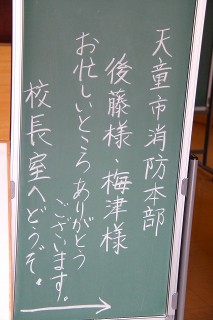 天童市消防本部
後藤様・梅津様
お忙しいところありがとう
ございます。
校長室へどうぞ。